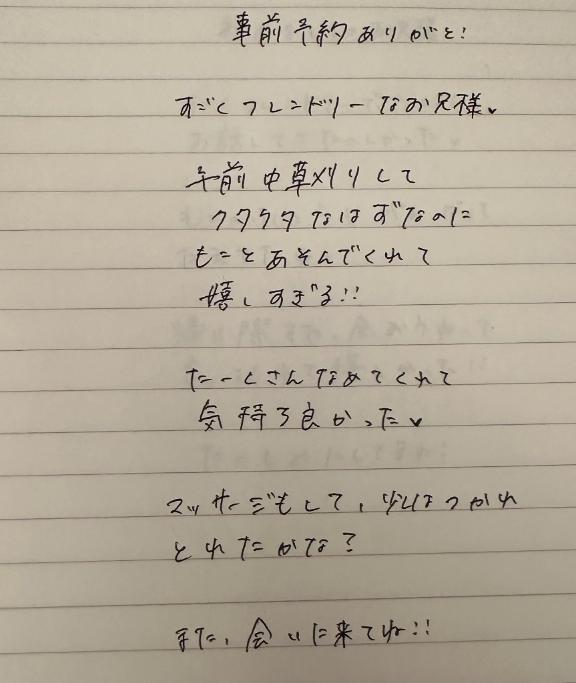 事前予約ありがと!
すごくフレンドリーなお兄様♥
午前中草刈りして
クタクタなはずなのに
もことあそんでくれて
嬉しすぎる!!
たーくさんなめてくれて
気持ち良かった♥
マッサージもして、少しはつかれ
とれたかな?
また、会いに来てね!!